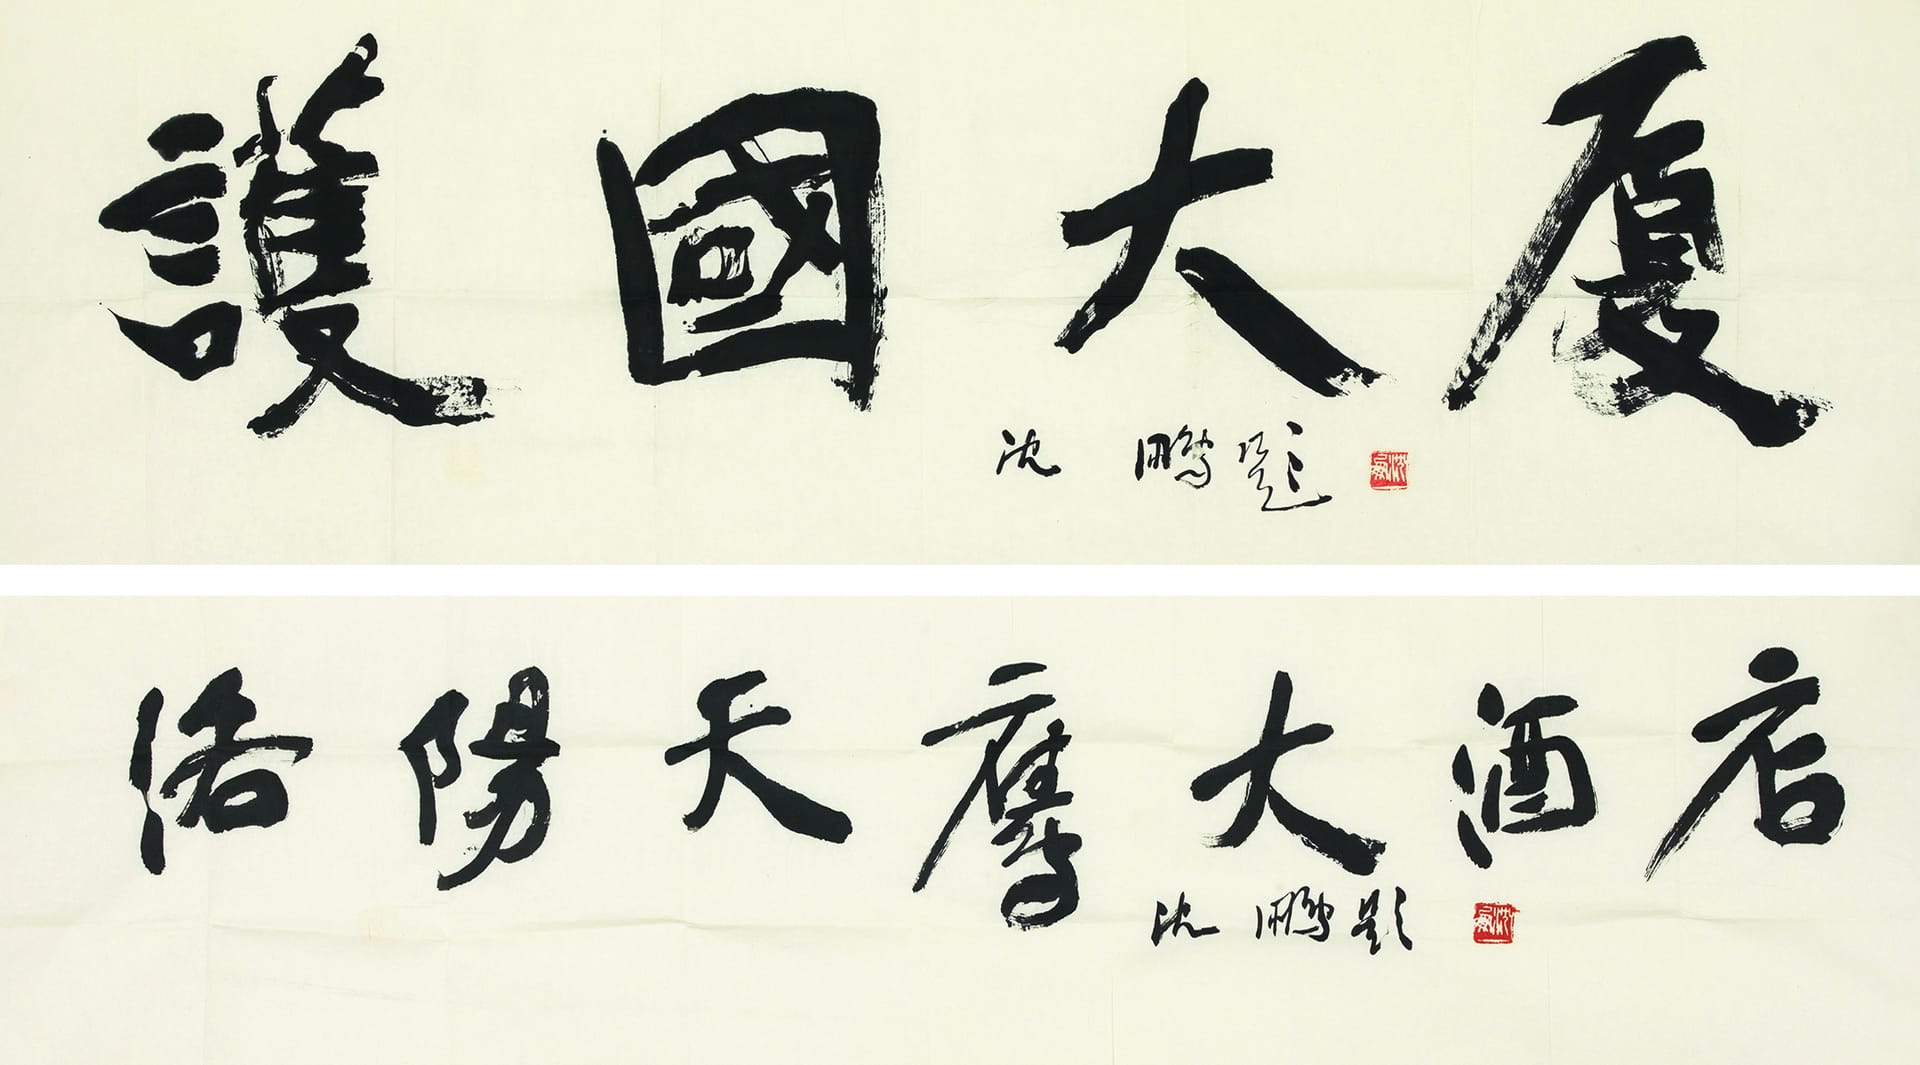 護國大厦
沈鵬題
洛陽天鷹大酒店
沈鵬題